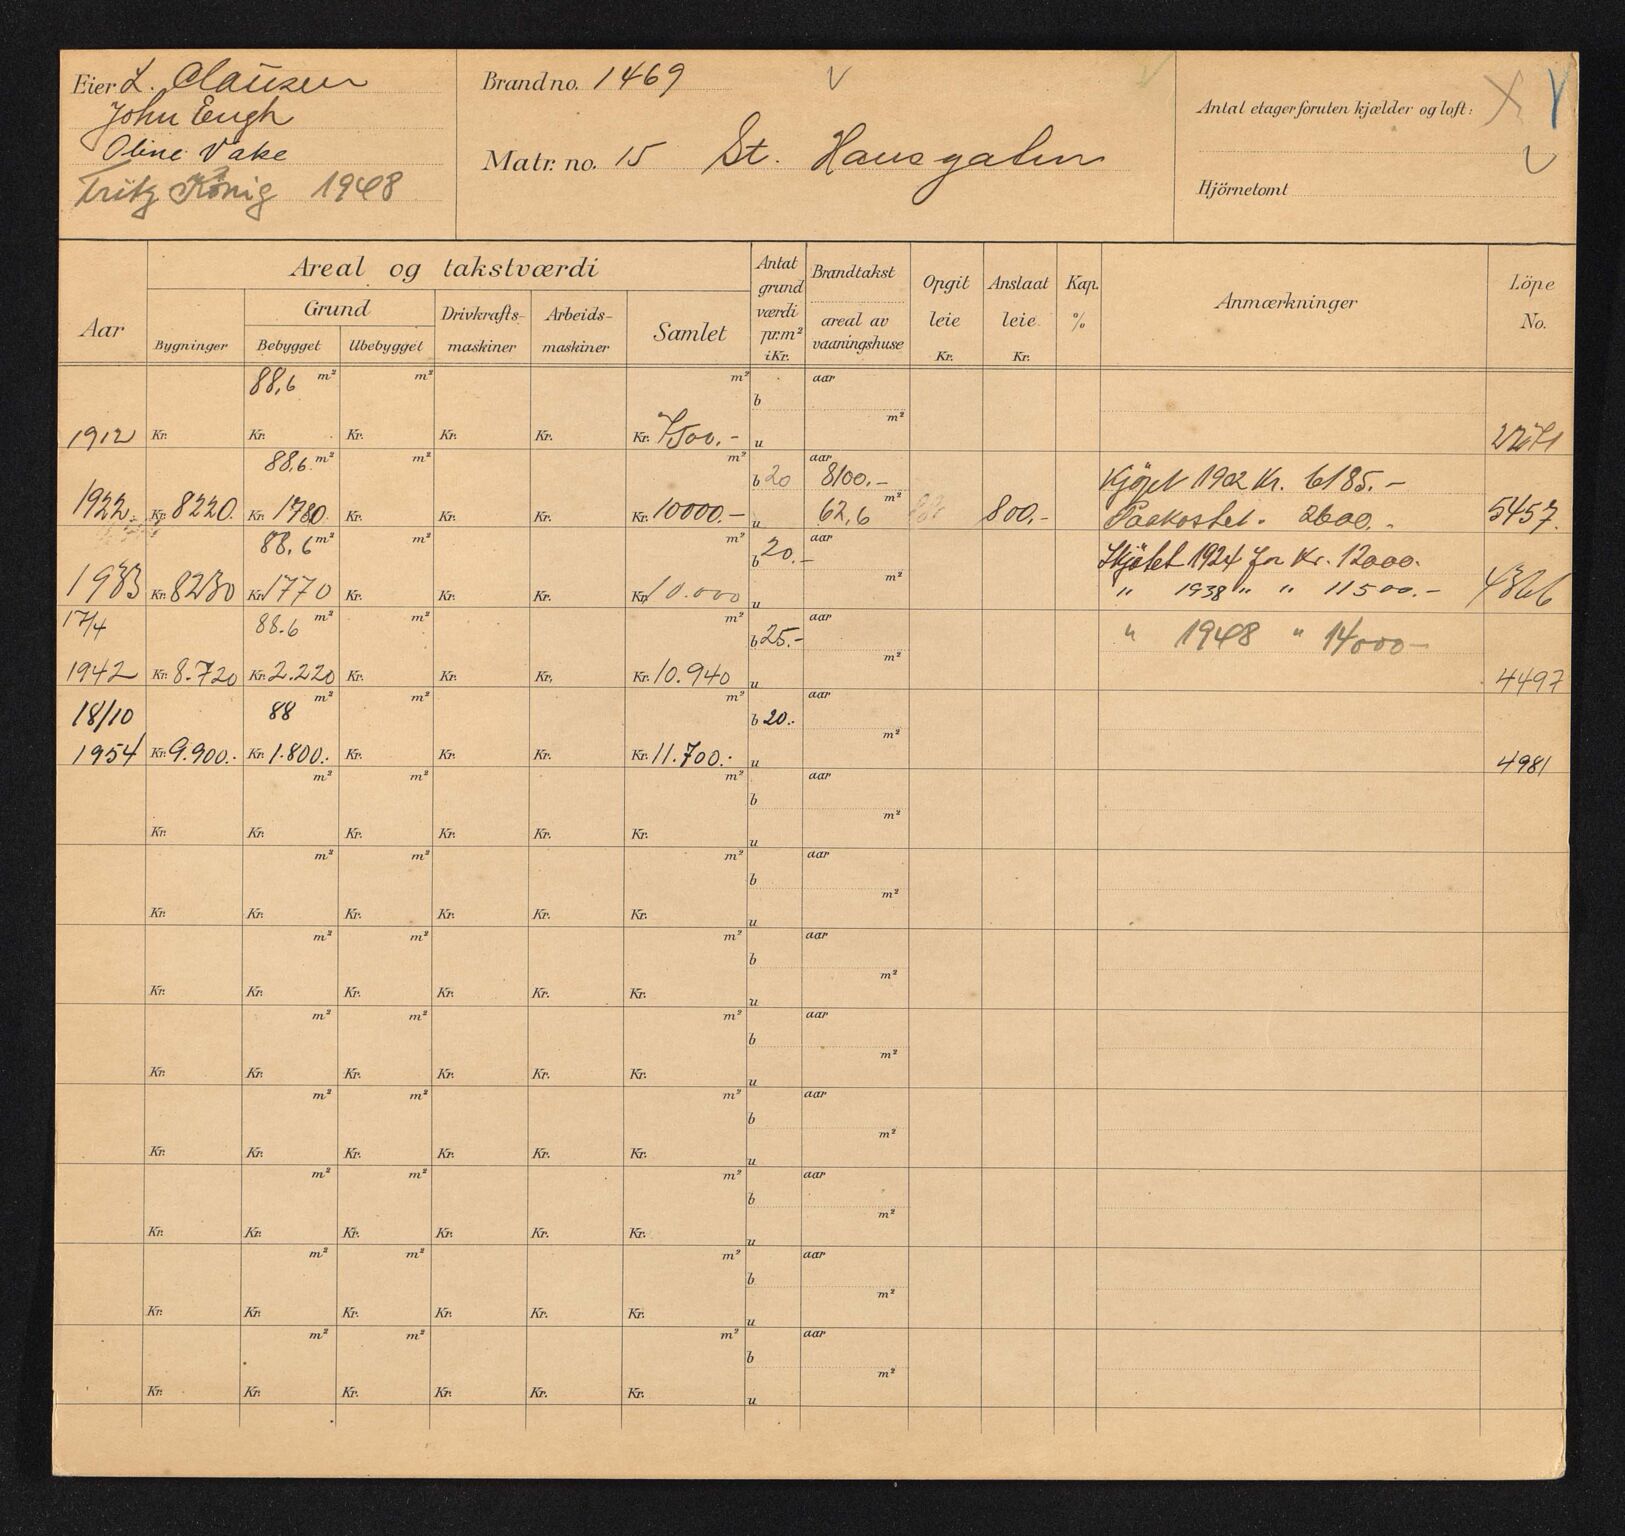 Eier L. Clausen
John Eugh
Oline Vake
Fritz König 1948
Brandno. 1469
Matr. no. 15 St. Hansgaten
Antal etager foruten kjælder og loft:
Hjörnetomt
Aar
Areal og takstværdi
Bygninger
Grund
Bebygget Ubebygget
Drivkrafts-maskiner
Arbeids-maskiner
Samlet
Antat grund værdi pr. m² i Kr.
Brandtakst
areal av vaaningshuse
Opgit leie Kr.
Anslaat leie Kr.
Kap. %
Anmærkninger
Löpe No.
88,6 m² m² m² aar
b m²
1912 Kr. Kr. Kr. Kr. Kr. Kr. 7500.- u
88,6 m² m² m² b 20 aar 8100.- Kjöpt 1902 Kr. 6185.-
1922 Kr. 8220. Kr. 1780. Kr. Kr. Kr. Kr. 10000.- u 62,6 m² 800.- Paakostet " 2600.-
5457.
88,6 m² m² m² b 20.- aar Skjötet 1924 for Kr. 12000.
1933 Kr. 8230 Kr. 1770 Kr. Kr. Kr. Kr. 10.000 u m² " 1938 " " 11500.-
17/4 88.6 m² m² m² b 25.- aar " 1948 " 14000-
1942 Kr. 8.720 Kr. 2.220 Kr. Kr. Kr. Kr. 10.940 u m² 4497
18/10 88 m² m² m² b 20.- aar
1954 Kr. 9.900.- Kr. 1.800.- Kr. Kr. Kr. Kr. 11.700.- u m² 4981
m² m² m² aar
b m²
Kr. Kr. Kr. Kr. Kr. Kr. u
m² m² m² aar
b m²
Kr. Kr. Kr. Kr. Kr. Kr. u
m² m² m² aar
b m²
Kr. Kr. Kr. Kr. Kr. Kr. u
m² m² m² aar
b m²
Kr. Kr. Kr. Kr. Kr. Kr. u
m² m² m² aar
b m²
Kr. Kr. Kr. Kr. Kr. Kr. u
m² m² m² aar
b m²
Kr. Kr. Kr. Kr. Kr. Kr. u
m² m² m² aar
b m²
Kr. Kr. Kr. Kr. Kr. Kr. u
m² m² m² aar
b m²
Kr. Kr. Kr. Kr. Kr. Kr. u